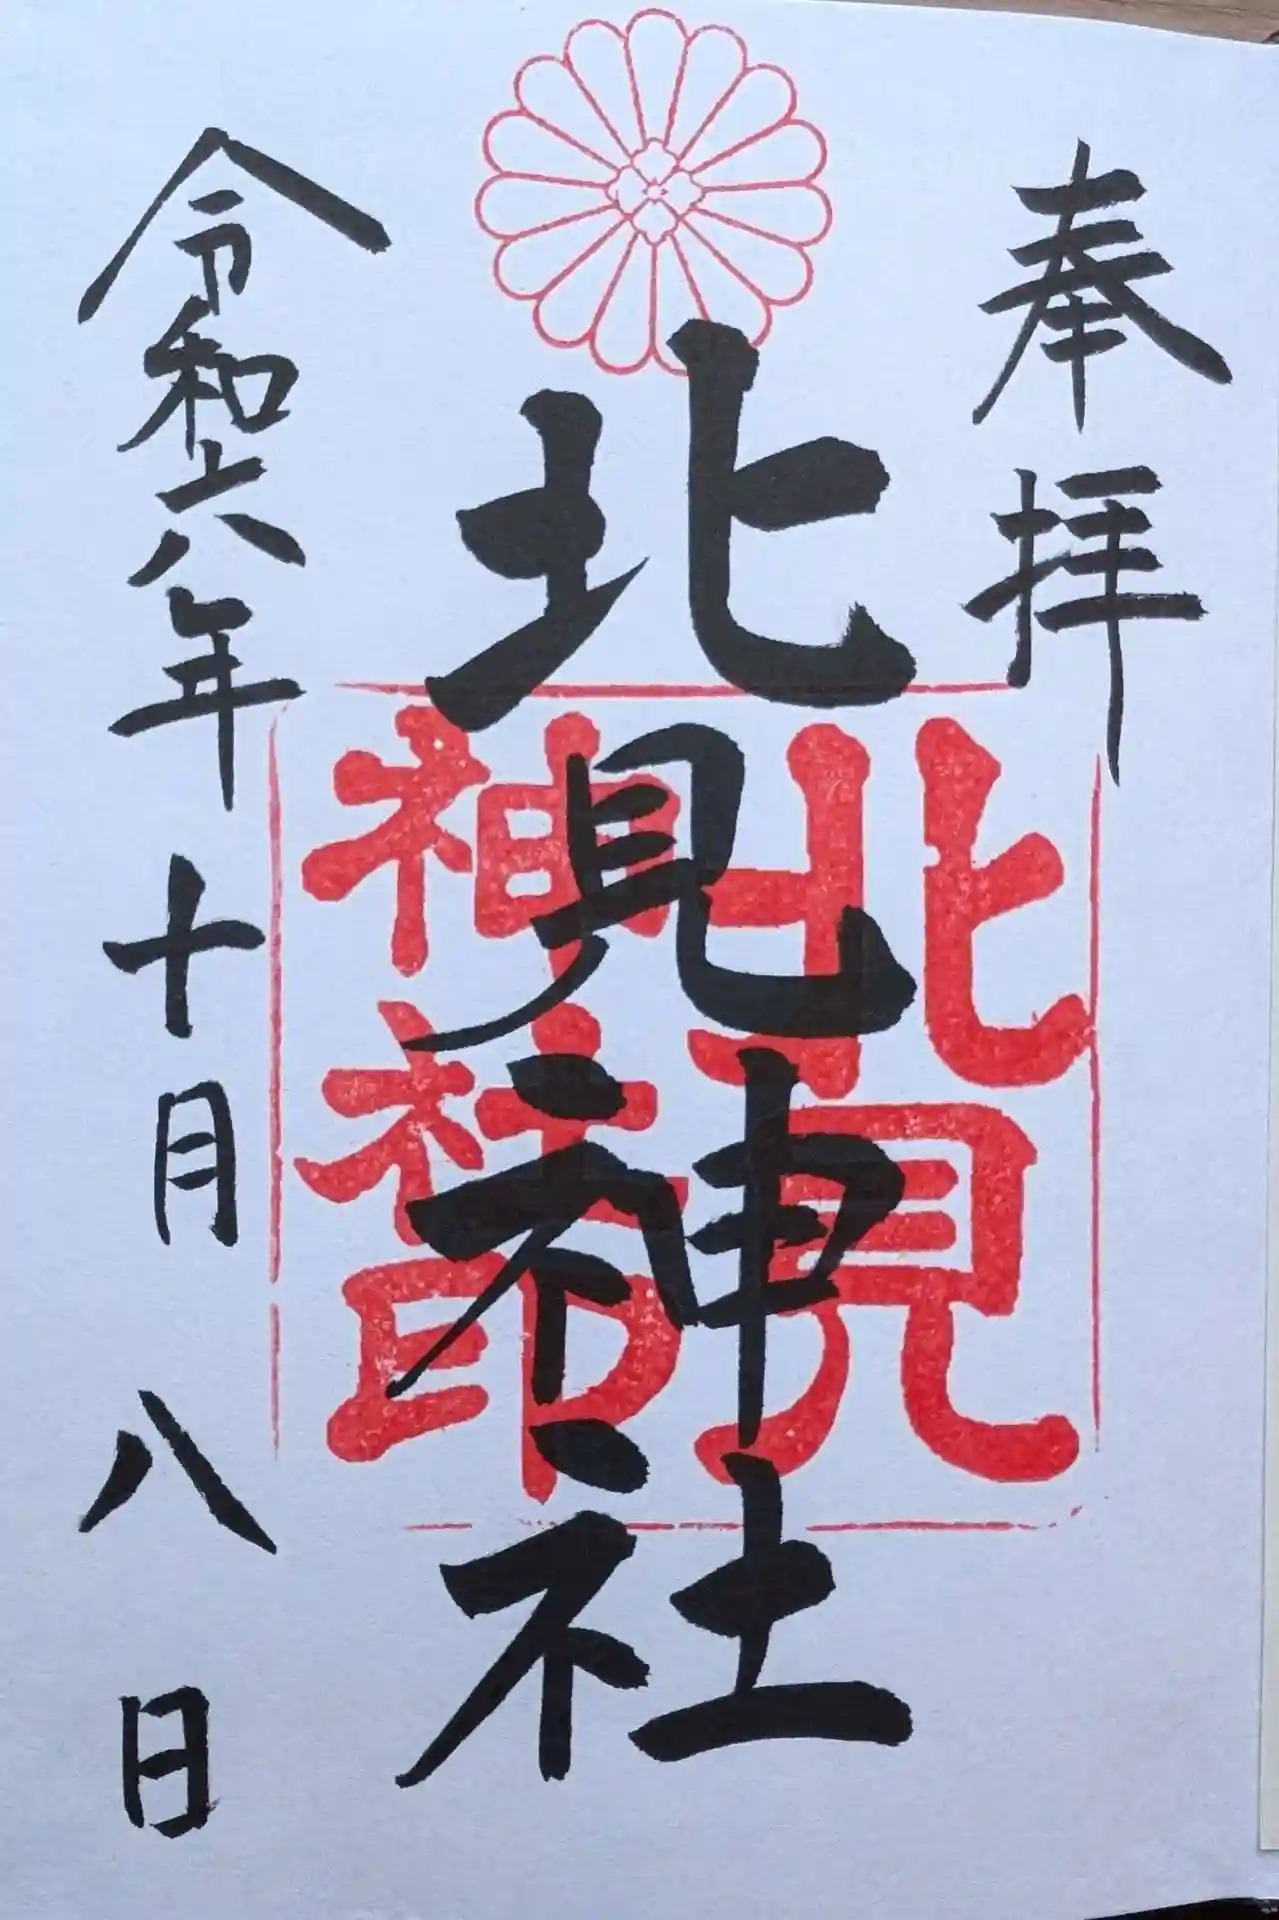 奉拝
北見神社
北見
神社印
令和六年十月八日